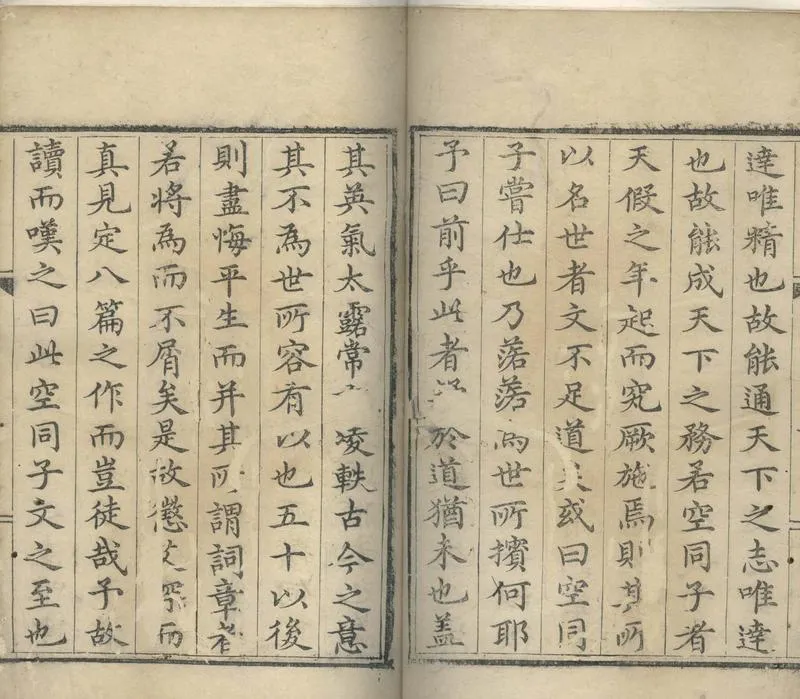 達唯精也故能通天下之志唯達
也故能成天下之務若空同子者
天假之年起而究厥施焉則其所
以名世者文不足道矣或曰空同
子嘗仕也乃落落為世所擯何耶
予曰前乎此者於道猶未也盖
其英氣太露常凌軼古今之意
其不為世所容有以也五十以後
則盡悔平生而并其所謂詞章者
若將為而不屑矣是故懲而
真見定八篇之作而豈徒哉予故
讀而嘆之曰此空同子文之至也